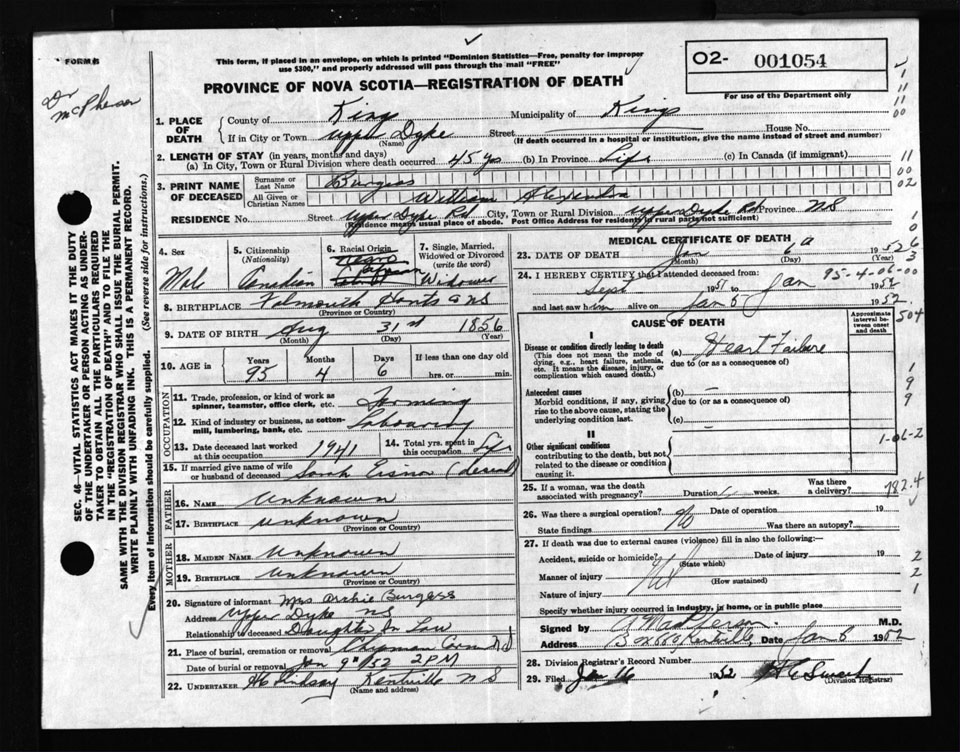 FORM 6
This form, if placed in an envelope, on which is printed "Dominion Statistics—Free, penalty for improper
use $300," and properly addressed will pass through the mail "FREE"
PROVINCE OF NOVA SCOTIA—REGISTRATION OF DEATH
02- 001054
For use of the Department only
Dr
McPherson
1. PLACE OF DEATH
County of Kings Municipality of Kings
If in City or Town Upper Dyke Street House No.
(Name) (If death occurred in a hospital or institution, give the name instead of street and number)
2. LENGTH OF STAY (in years, months and days)
(a) In City, Town or Rural Division where death occurred 45 yrs (b) In Province Life (c) In Canada (if immigrant)
3. PRINT NAME OF DECEASED
Surname or Last Name Burgess
All Given or Christian Names William Alexander
RESIDENCE No. Street Upper Dyke Rd City, Town or Rural Division Upper Dyke Rd Province NS
(Residence means usual place of abode. Post Office Address for residents in rural parts not sufficient)
4. Sex
Male
5. Citizenship
(Nationality)
Canadian
6. Racial Origin
Negro
7. Single, Married, Widowed or Divorced
(write the word)
Widower
8. BIRTHPLACE Falmouth Hants Co NS
(Province or Country)
9. DATE OF BIRTH Aug 31st 1856
(Month) (Day) (Year)
10. AGE in Years Months Days If less than one day old
95 4 6 hrs. or min.
OCCUPATION
11. Trade, profession, or kind of work as
spinner, teamster, office clerk, etc. Farming
12. Kind of industry or business, as cotton-
mill, lumbering, bank, etc. Labouring
13. Date deceased last worked
at this occupation 1941
14. Total yrs. spent in
this occupation
15. If married give name of wife
or husband of deceased Sarah
FATHER
16. NAME Unknown
17. BIRTHPLACE Unknown
(Province or Country)
MOTHER
18. MAIDEN NAME Unknown
19. BIRTHPLACE Unknown
(Province or Country)
20. Signature of informant Mrs Archie Burgess
Address Upper Dyke NS
Relationship to deceased Daughter In Law
21. Place of burial, cremation or removal Chipman Corner NS
Date of burial or removal Jan 9th/52 2 PM
22. UNDERTAKER Kentville NS
(Name and address)
MEDICAL CERTIFICATE OF DEATH
23. DATE OF DEATH Jan 6 1952
(Month) (Day) (Year)
24. I HEREBY CERTIFY that I attended deceased from:
95-4-06-00
Sept 1951 to Jan 1952
and last saw him alive on Jan 5 1952
CAUSE OF DEATH
Approximate interval between onset and death
I
Disease or condition directly leading to death
(This does not mean the mode of dying, e.g., heart failure, asthenia, etc. It means the disease, injury, or complication which caused death.)
(a) Heart Failure
due to (or as a consequence of)
Antecedent causes
Morbid conditions, if any, giving rise to the above cause, stating the underlying condition last.
(b) –
due to (or as a consequence of)
(c) –
II
Other significant conditions
contributing to the death, but not related to the disease or condition causing it.
504
1-06-2
782.4
25. If a woman, was the death
associated with pregnancy? Duration weeks. Was there a delivery?
26. Was there a surgical operation? No Date of operation 19
State findings Was there an autopsy?
27. If death was due to external causes (violence) fill in also the following:—
Accident, suicide or homicide? Date of injury 19
(State which)
Manner of injury
(How sustained)
Nature of injury
Specify whether injury occurred in industry, in home, or in public place
Signed by M.D.
Address Box 669 Kentville, Date Jan 1952
28. Division Registrar's Record Number
29. Filed Jan 16 1952
(Division Registrar)
SEC. 46—VITAL STATISTICS ACT MAKES IT THE DUTY
OF THE UNDERTAKER OR PERSON ACTING AS UNDER-
TAKER TO OBTAIN ALL THE PARTICULARS REQUIRED
IN THE "REGISTRATION OF DEATH" AND TO FILE THE
SAME WITH THE DIVISION REGISTRAR WHO SHALL ISSUE THE BURIAL PERMIT.
WRITE PLAINLY WITH UNFADING INK. THIS IS A PERMANENT RECORD.
Every item of Information should be carefully supplied. (See reverse side for instructions.)